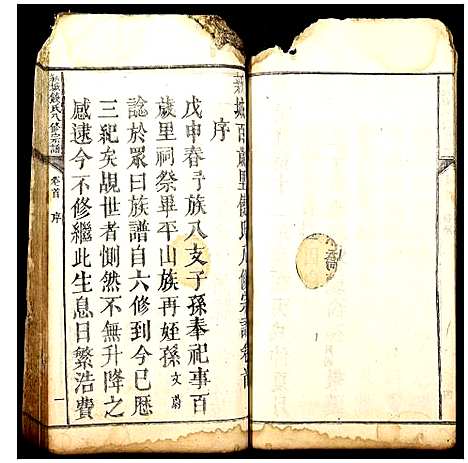 新城百歲里錢氏八修宗譜卷首
序
戊申春予族八支子孫奉祀事百
歲里祠祭畢平山族再姪孫文蔚
諗於眾曰族譜自六修到今已歷
三紀矣覘世者惻然不無升降之
感逮今不修繼此生息日繁浩費
新城錢氏八修宗譜
卷首
序
一